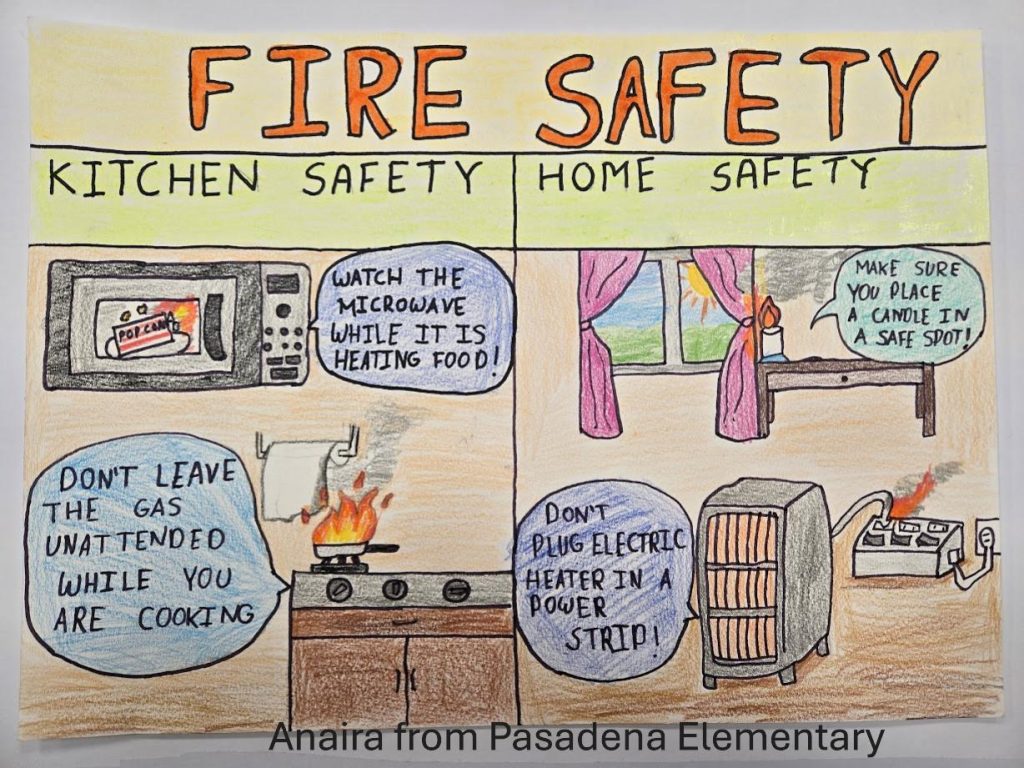 FIRE SAFETY
KITCHEN SAFETY
HOME SAFETY
WATCH THE
MICROWAVE
WHILE IT IS
HEATING FOOD!
POP CORN
DON'T LEAVE
THE GAS
UNATTENDED
WHILE YOU
ARE COOKING
MAKE SURE
YOU PLACE
A CANDLE IN
A SAFE SPOT!
DON'T
PLUG ELECTRIC
HEATER IN A
POWER
STRIP!
Anaira from Pasadena Elementary